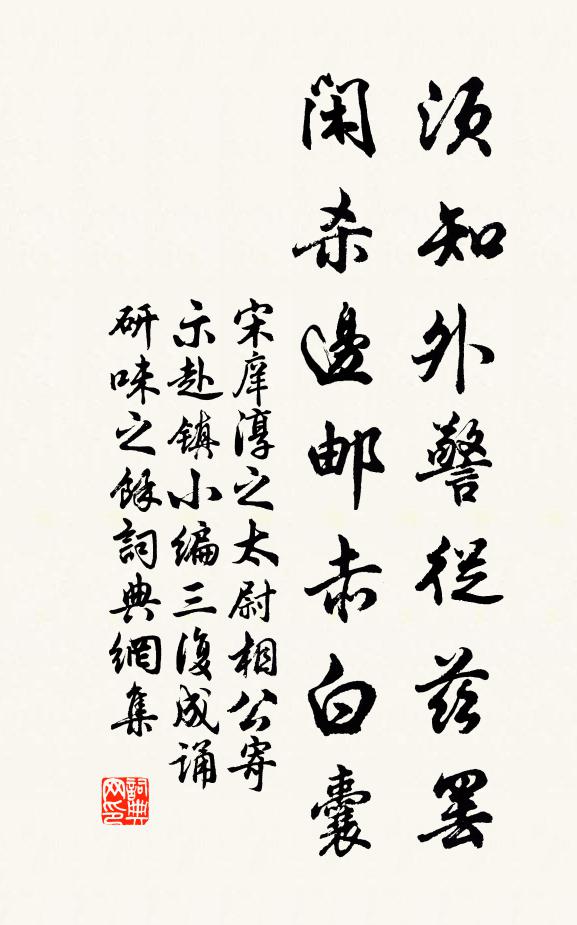 須知外警從茲罷
閑殺邊邮赤白囊
宋庠淳之太尉相公寄
示赴鎮小編三復成诵
研味之餘詞典網集
詞典網印